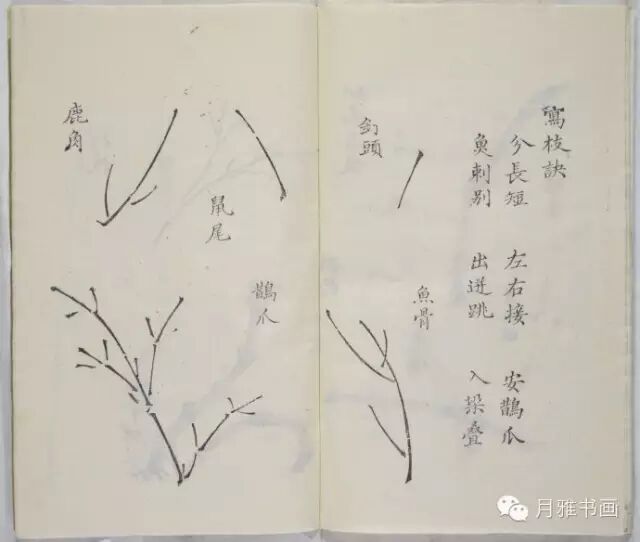 寫枝訣
分長短 左右接 安鵲爪
魚刺别 出迸跳 入探叠
釘頭
魚骨
鼠尾
鵲爪
鹿角
月雅书画